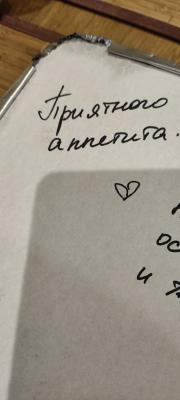 Приятного
аппетита.
ос
и